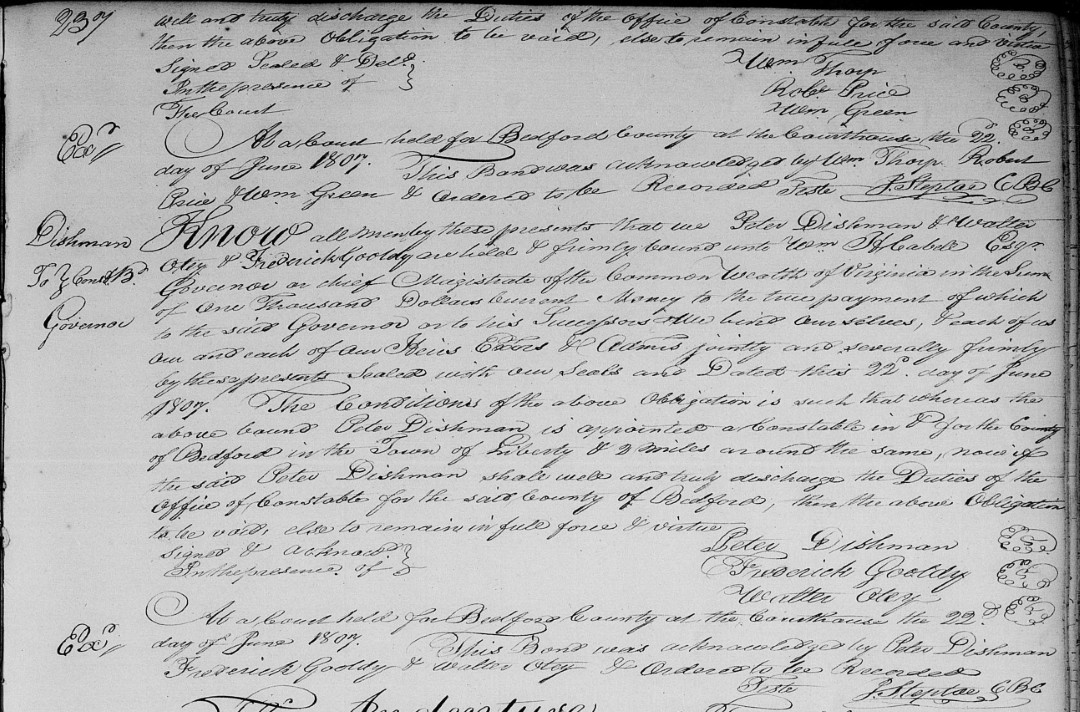 237
well and truly discharge the Duties of the Office of Constable for the said County,
then the above Obligation to be void, else to remain in full force and virtue
Signed Sealed & Deld.
In the presence of
The Court
Wm Thorp
Robt. Price
Wm Green
Exd.
At a Court held for Bedford County at the Courthouse the 22d.
day of June 1807. This Bond was acknowledged by Wm. Thorp Robert
Price & Wm Green & Ordered to be Recorded Teste J. Steptoe CBC
Dishman
To } Const. Bd.
Governor
Know all men by these presents that we Peter Dishman & Walter
Otey & Frederick Gooldy are held & firmly bound unto Wm H Cabell Esqr.
Governor or chief Magistrate of the Common Wealth of Virginia in the Sum
of One Thousand Dollars Current Money to the true payment of which
to the said Governor or to his Successors We bind ourselves, & each of us
our and each of our Heirs Exors & Admrs jointly and severally firmly
by these presents Sealed with our Seals and Dated this 22d. day of June
1807. The Conditions of the above Obligation is such that whereas the
above bound Peter Dishman is appointed a Constable in & for the County
of Bedford in the Town of Liberty & 3 miles around the same, now if
the said Peter Dishman shall well and truly discharge the Duties of the
Office of Constable for the said County of Bedford, then the above Obligation
to be void, else to remain in full force & virtue
Signed & acknow.
In the presence of
Peter Dishman
Frederick Gooldy
Walter Otey
Exd.
At a Court held for Bedford County at the Courthouse the 22d
day of June 1807. This Bond was acknowledged by Peter Dishman
Frederick Gooldy & Walter Otey & Ordered to be Recorded
Teste J. Steptoe CBC
This Indenture